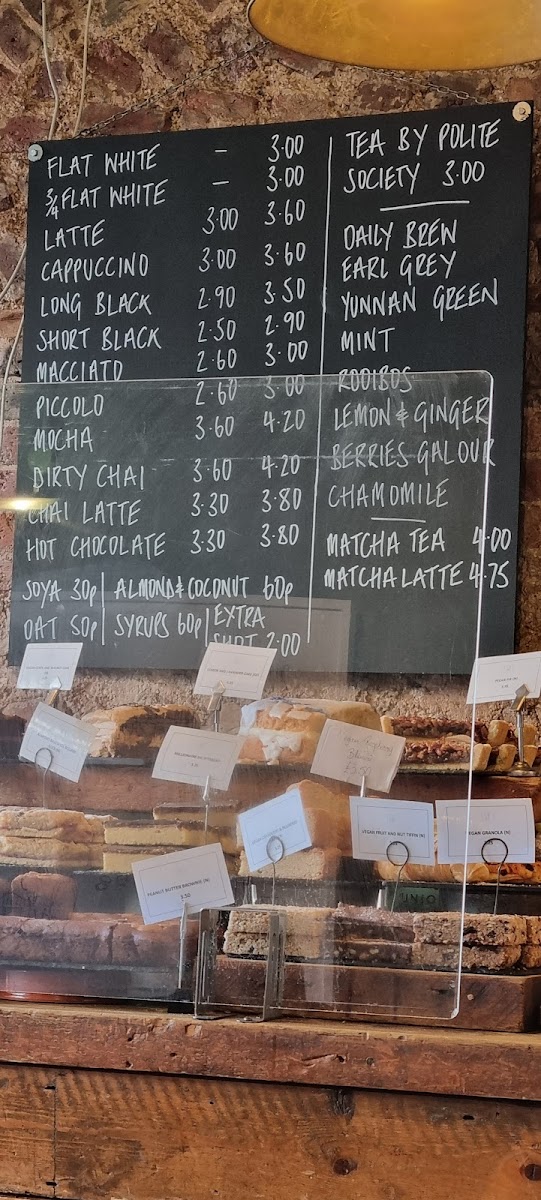 FLAT WHITE – 3.00
¾ FLAT WHITE – 3.00
LATTE 3.00 3.60
CAPPUCCINO 3.00 3.60
LONG BLACK 2.90 3.50
SHORT BLACK 2.50 2.90
MACCIATO 2.60 3.00
PICCOLO 2.60 3.00
MOCHA 3.60 4.20
DIRTY CHAI 3.60 4.20
CHAI LATTE 3.30 3.80
HOT CHOCOLATE 3.30 3.80
SOYA 30p | ALMOND & COCONUT 60p
OAT 50p | SYRUPS 60p | EXTRA
SHOT 2.00
TEA BY POLITE
SOCIETY 3.00
DAILY BREW
EARL GREY
YUNNAN GREEN
MINT
ROOIBOS
LEMON & GINGER
BERRIES GALOUR
CHAMOMILE
MATCHA TEA 4.00
MATCHA LATTE 4.75
VEGAN FRUIT AND NUT TIFFIN (N)
VEGAN GRANOLA (N)
PEANUT BUTTER BROWNIE (N)
3.50